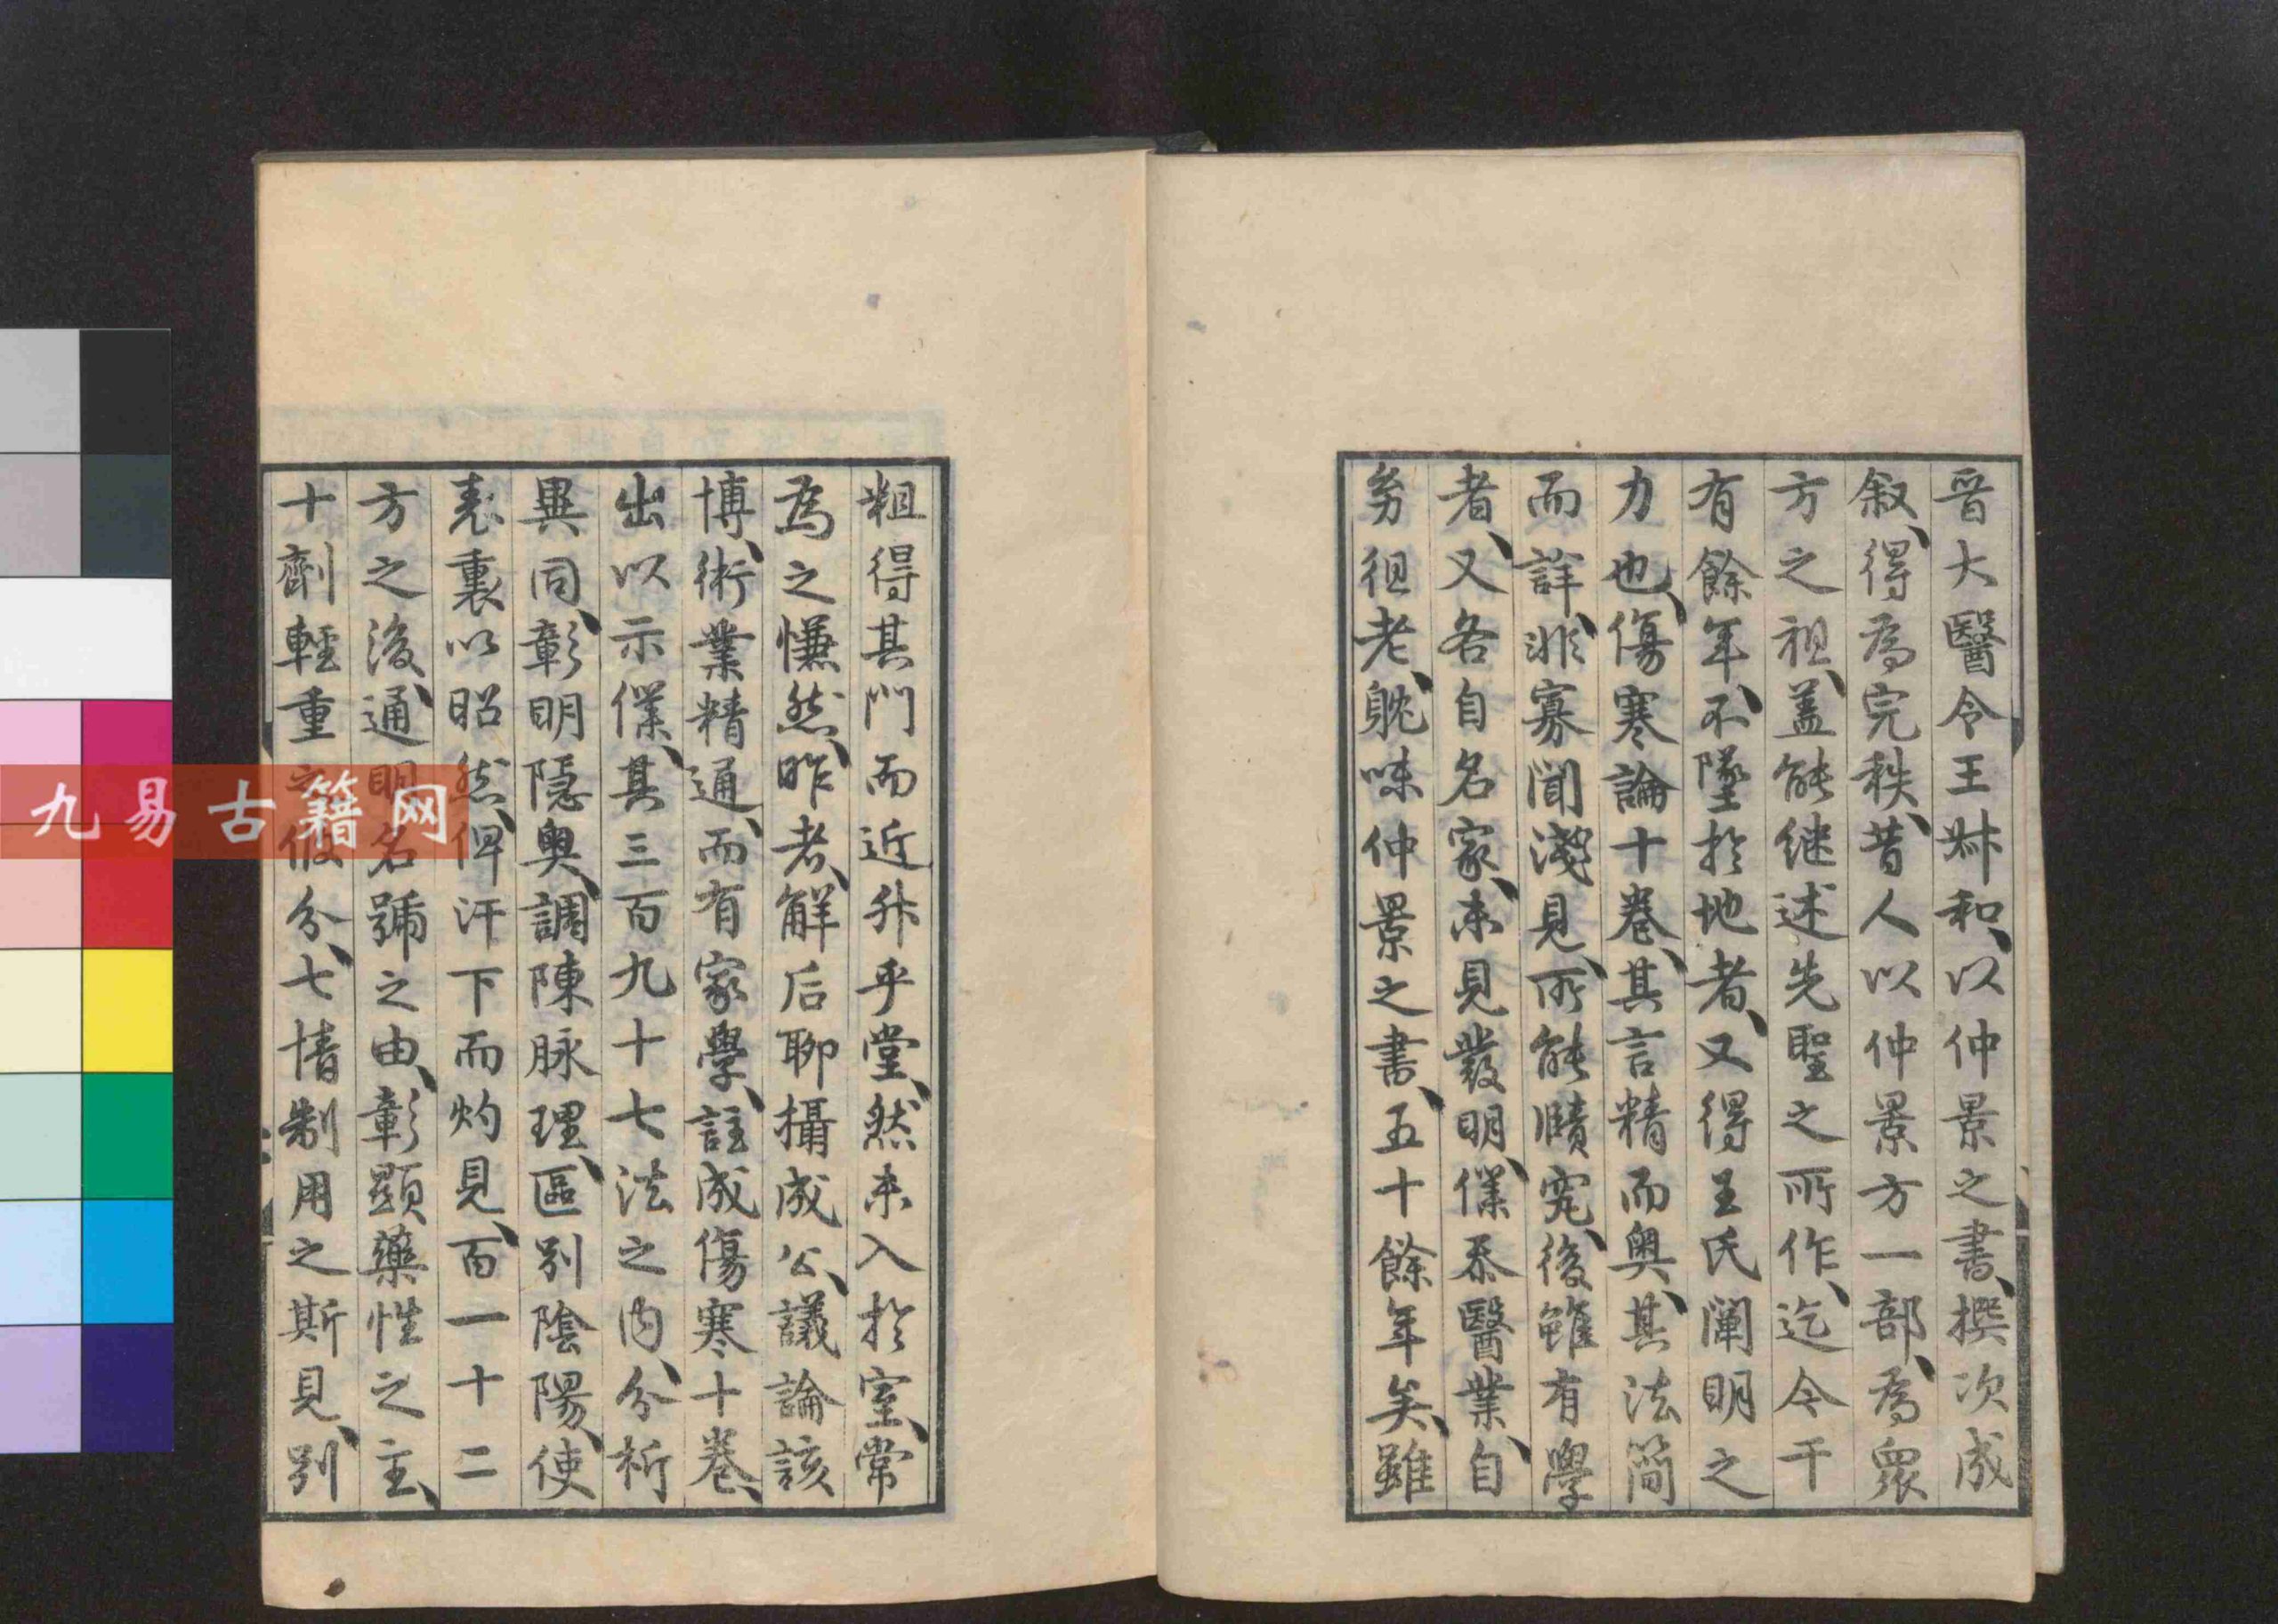 晉大醫令王叔和、以仲景之書、撰次成
叙、得為完秩、昔人以仲景方一部、為衆
方之祖、蓋能继述先聖之所作、迄今千
有餘年、不墜於地者、又得王氏闡明之
力也、傷寒論十卷、其言精而奥、其法簡
而詳、非寡聞淺見、所能賾究、後雖有學
者、又各自名家、未見發明、僕忝醫業、自
㓜徂老、躭味仲景之書、五十餘年矣、雖
粗得其門而近升乎堂、然未入於室、常
為之慊然、昨者、解后聊攝成公、議論該
博、術業精通、而有家學、註成傷寒十卷、
出以示僕、其三百九十七法之内、分析
異同、彰明隱奥、調陳脉理、區别陰陽、使
表裏以昭然、俾汗下而灼見、百一十二
方之後、通明名號之由、彰顯藥性之主、
十劑輕重之攸分、七情制用之斯見、别
九易古籍网